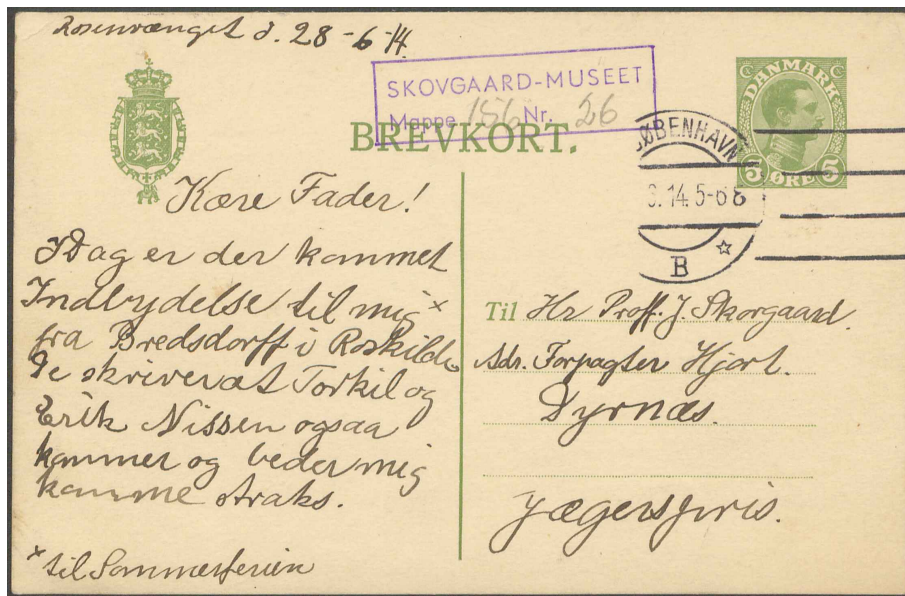 Rosenvænget d. 28-6-14.
SKOVGAARD-MUSEET
Mappe 156 Nr. 26
BREVKORT.
DANMARK
5 ØRE 5
KØBENHAVN
6.14. 5-6 E
B
Kære Fader!
I Dag er der kommet
Indbydelse til mig ×
fra Bredsdorff i Roskilde
De skriver at Torkil og
Erik Nissen ogsaa
kommer og beder mig
komme straks.
× til Sommerferien
Til Hr Proff. J. Skovgaard.
Adr. Forpagter Hjort.
Dyrnæs.
Jægerspris.